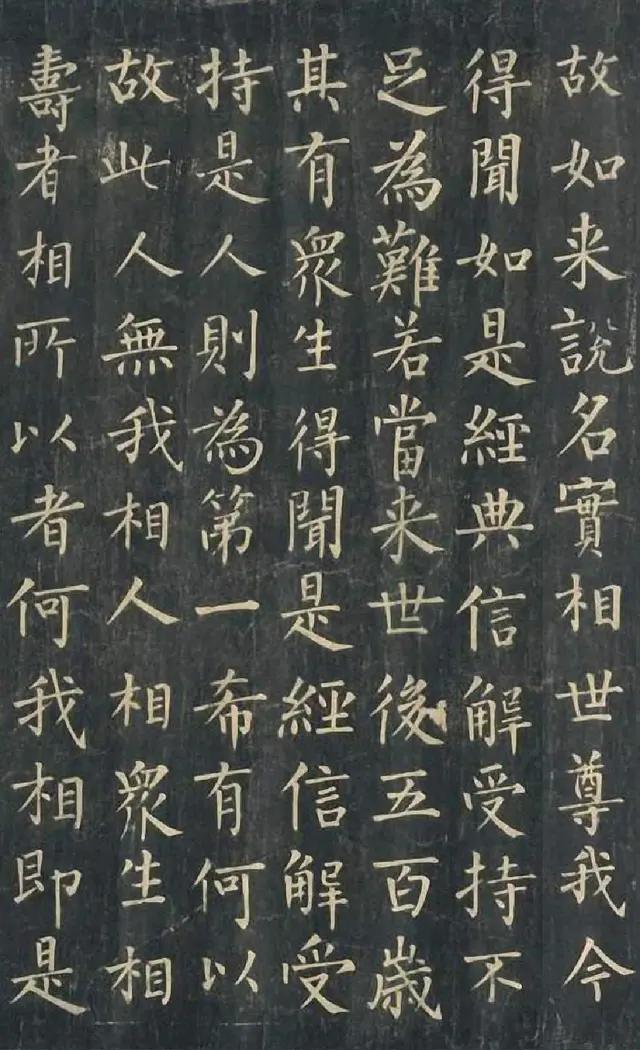 故如来說名實相世尊我今
得聞如是經典信解受持不
足為難若當来世後五百歲
其有衆生得聞是經信解受
持是人則為第一希有何以
故此人無我相人相衆生相
壽者相所以者何我相即是